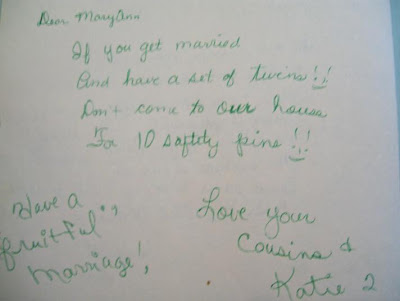 Dear MaryAnn
If you get married
And have a set of twins!!
Don't come to our house
For 10 saftety pins!!
Have a
fruitful
marriage!
Love your
Cousins &
Katie 2